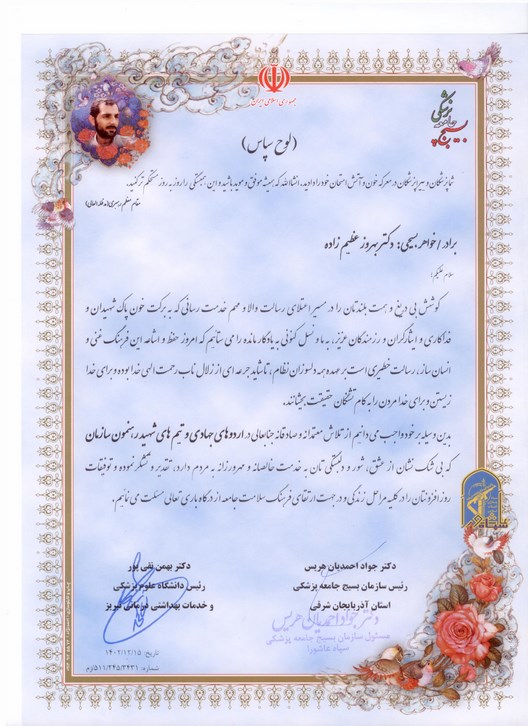 جمهوری اسلامی ایران
بسیج جامعه پزشکی
(لوح سپاس)
شما پزشکان و پیراپزشکان در معرکه خون و آتش امتحان خود را دادید، انشاالله که همیشه موفق و موید باشید و این همبستگی را روز به روز مستحکم تر کنید.
مقام معظم رهبری (مدظله العالی)
برادر / خواهر بسیجی: دکتر بهروز عظیم زاده
سلام علیکم؛
کوشش بی دریغ و همت بلندتان را در مسیر اعتلای رسالت والا و مهم خدمت رسانی که به برکت خون پاک شهیدان و
فداکاری و ایثارگران و رزمندگان عزیز، به ما و نسل کنونی به یادگار مانده را می ستاییم که امروز حفظ و اشاعه این فرهنگ غنی و
انسان ساز، رسالت خطیری است بر عهده همه دلسوزان نظام، تا شاید جرعه ای از زلال ناب رحمت الهی خدا بوده و برای خدا
زیستن و برای خدا مردن را به کام تشنگان حقیقت بچشانند.
بدین وسیله بر خود واجب می دانیم از تلاش متعهدانه و صادقانه جنابعالی در اردوهای جهادی و تیم های شهید رهنمون سازمان
که بی شک نشان از عشق، شور و دلبستگی تان به خدمت خالصانه و مهرورزانه به مردم دارد، تقدیر و تشکر نموده و توفیقات
روز افزونتان را در کلیه مراحل زندگی و در جهت ارتقای فرهنگ سلامت جامعه از درگاه باری تعالی مسئلت می نمایم.
سپاه
دکتر جواد احمدیان هریس
رئیس سازمان بسیج جامعه پزشکی
استان آذربایجان شرقی
دکتر جواد احمدیان هریس
مسئول سازمان بسیج جامعه پزشکی
سپاه عاشورا
دکتر بهمن نقی پور
رئیس دانشگاه علوم پزشکی
و خدمات بهداشتی درمانی تبریز
تاریخ: ۱۴۰۲/۱۲/۱۵
شماره: ۵۱۱/۲۴۵/۳۴۳۱/الزم